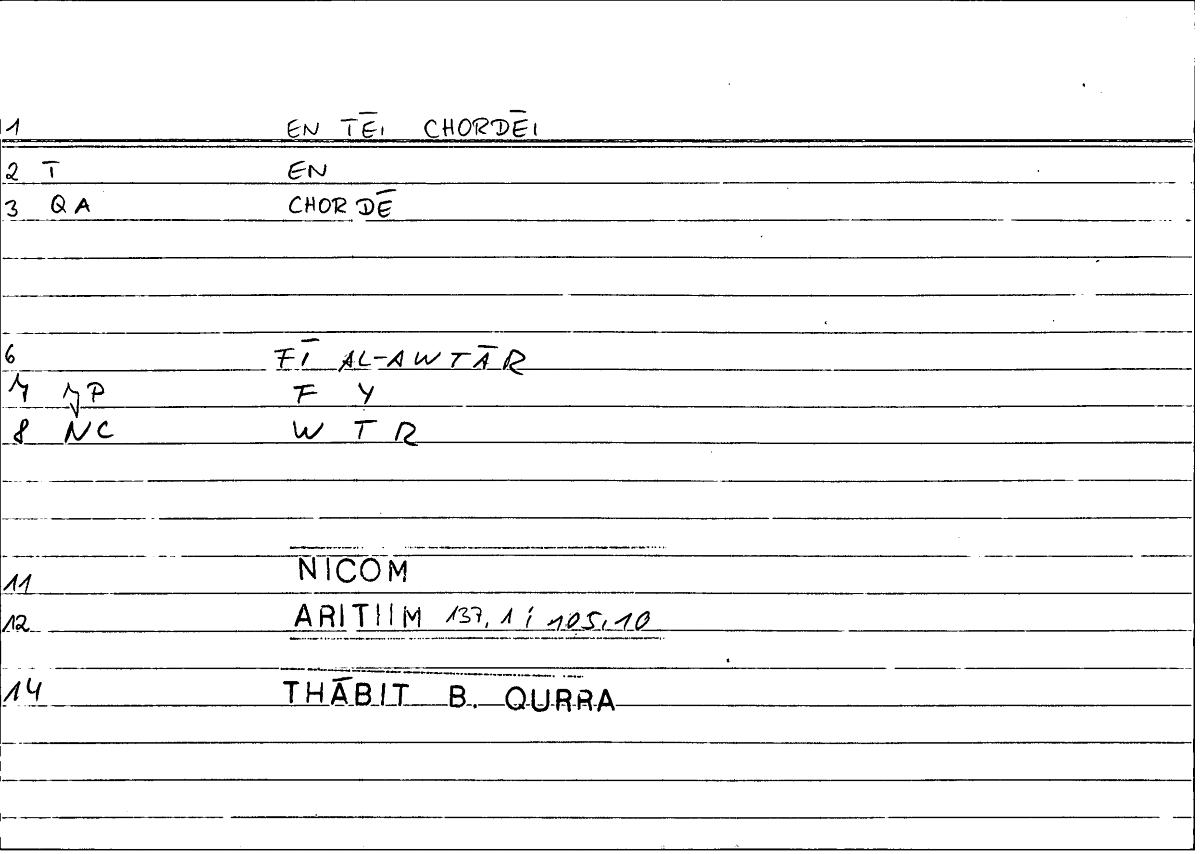 1 EN TĒI CHORDĒI
2 T EN
3 QA CHORDĒ
6 FĪ AL-AWTĀR
7 P F Y
8 NC W T R
11 NICOM
12 ARITIIM 137,1; 105,10
14 THĀBIT B. QURRA